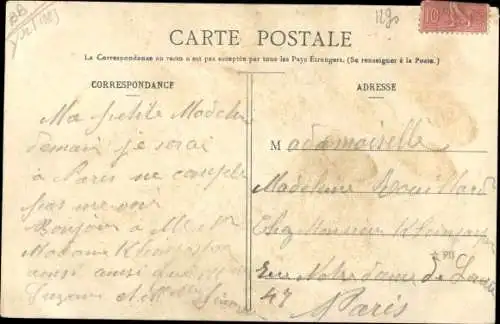 1290
10
CARTE POSTALE
La Correspondance au recto n'est pas acceptée par tous les Pays Étrangers. (Se renseigner à la Poste.)
CORRESPONDANCE
Ma petite Madeleine
demain je serai
à Paris ne compte
pas me voir
Bonjour à M et
Madame
ainsi que
Suzanne et
ADRESSE
Mademoiselle
Madeleine Rouillard
Chez Monsieur
Rue Notre Dame de
47
Paris